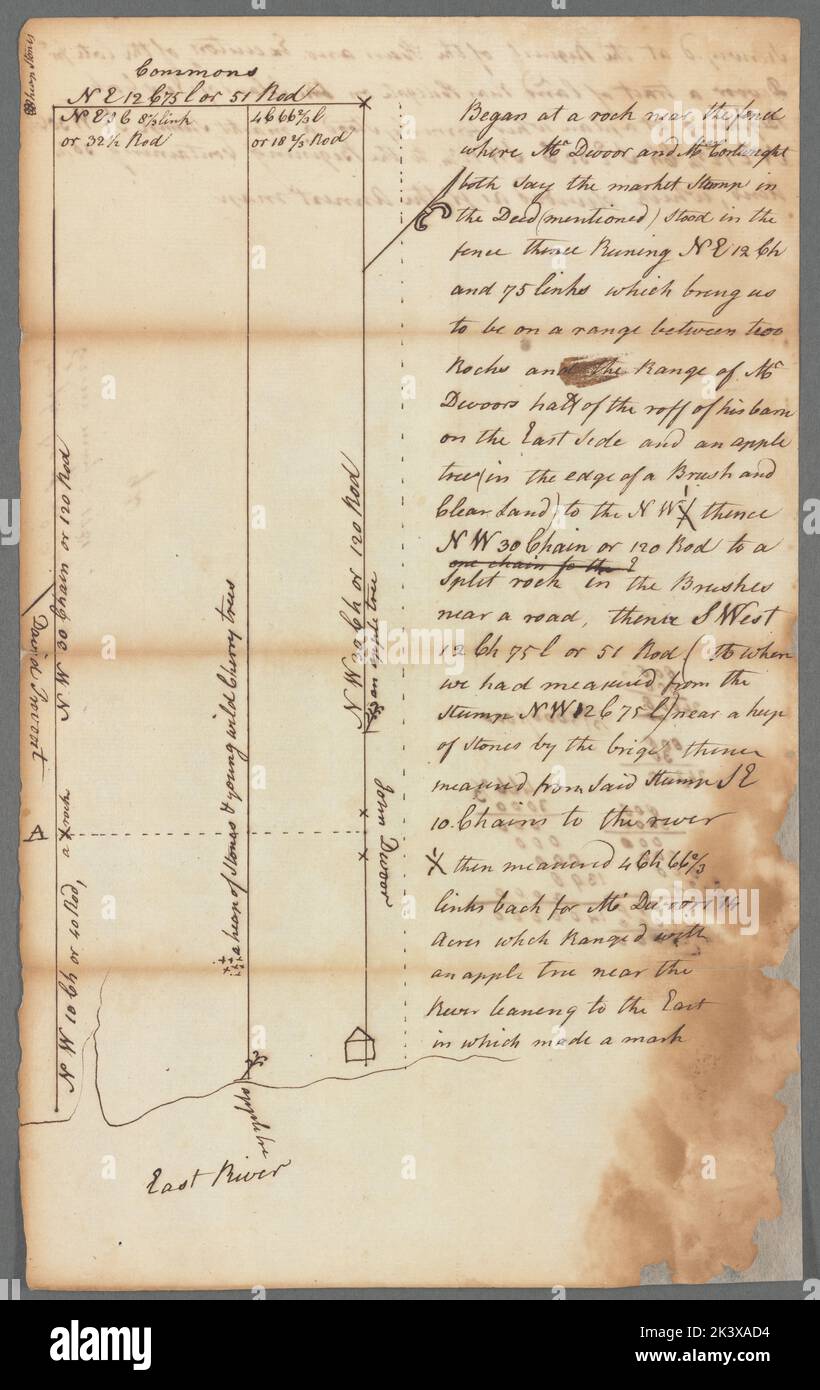 Commons
N E 12 C 75 l or 51 Rod
N E 8 C 8⅓ link
or 32⅓ Rod
4 C 66⅔ l
or 18⅔ Rod
N W 30 Chain or 120 Rod
David Provost
A
a rock
N W 10 Ch or 40 Rod,
a heap of Stones & young wild Cherry trees
N W 30 Ch or 120 Rod
an apple tree
John Devoor
appletr
East River
Began at a rock near the pond
where Mr Devoor and Mr
both Say the market Stump in
the Deed (mentioned) Stood in the
fence thence Runing N E 12 Ch
and 75 links which bring us
to be on a range between two
Rocks and the Range of Mr
Devoors half of the roff of his barn
on the East Side and an apple
tree (in the edge of a Brush and
Clear Land) to the N W thence
N W 30 Chain or 120 Rod to a
one chain to the E
Split rock in the Brushes
near a road, thence S West
12 Ch 75 l or 51 Rod (to where
we had measured from the
Stump N W 12 C 75 l) near a heep
of Stones by the brige thence
measured from Said Stump S E
10 Chains to the river
then measured 4 Ch 66⅔
links back for Mr Devoors 14
Acres which Ranged with
an apple tree near the
River leaneng to the East
in which made a mark
a
alamy
Image ID: 2K3XAD4
www.alamy.com